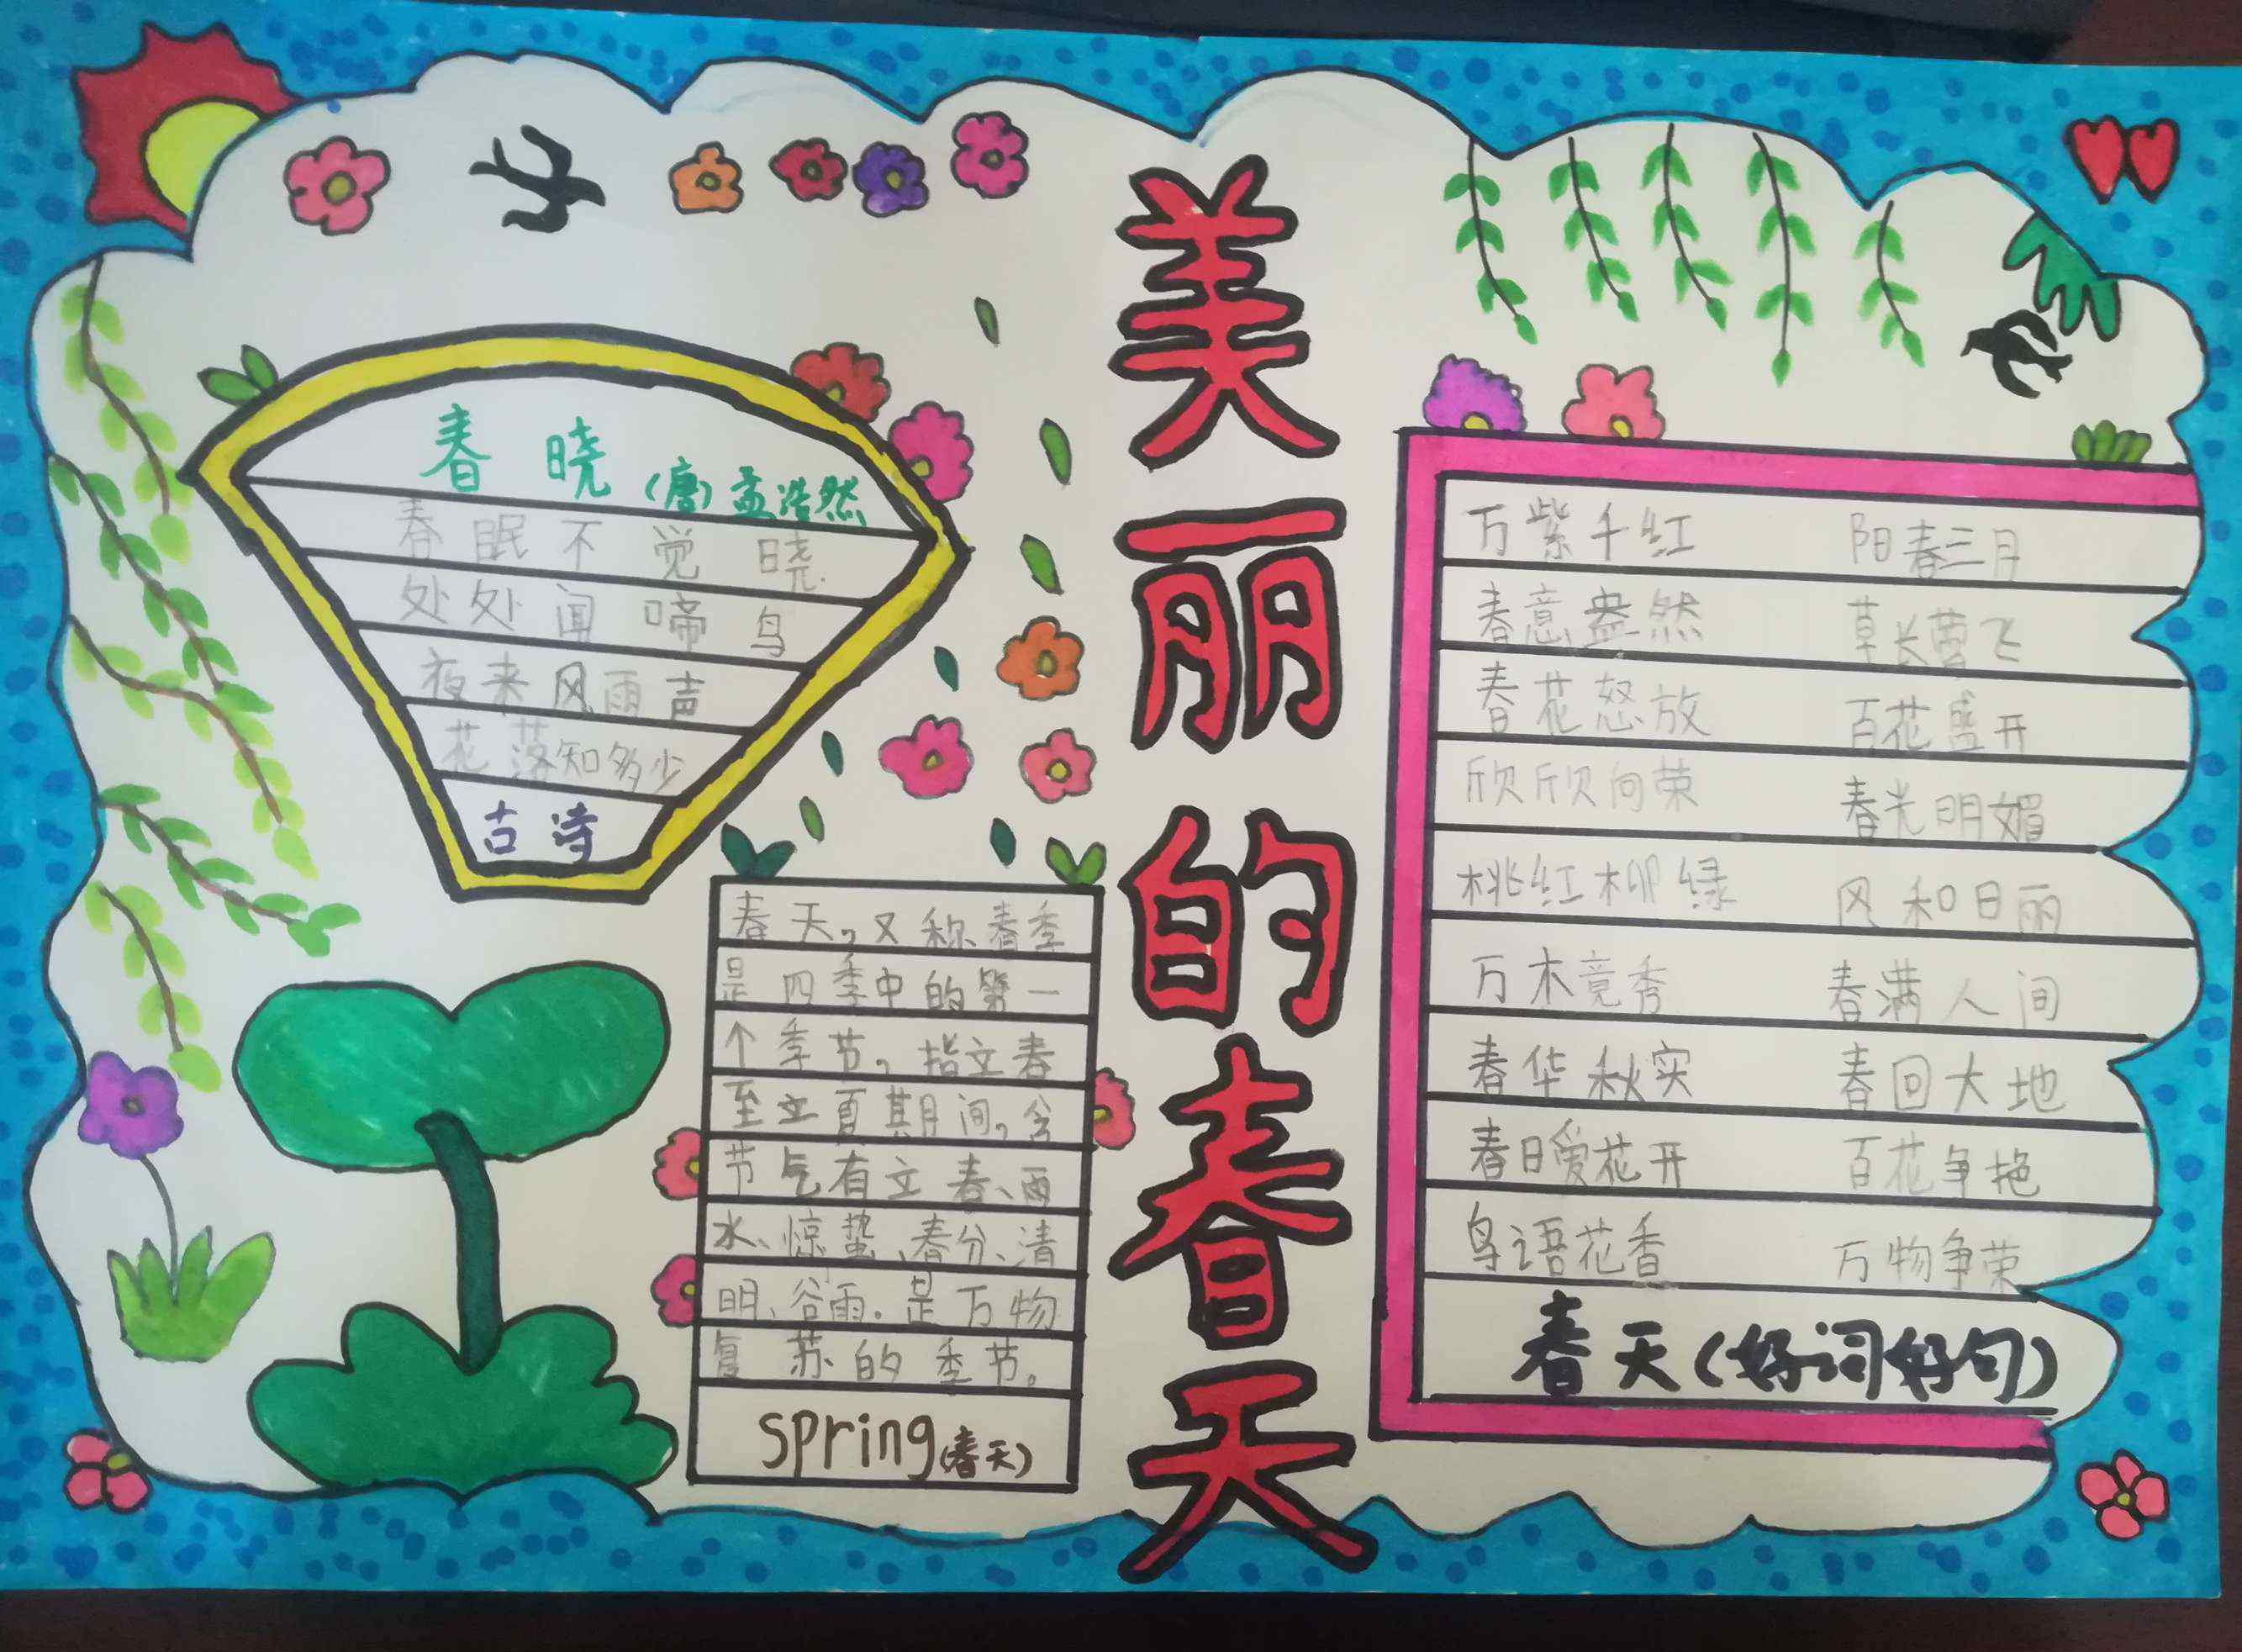 美丽的春天
春晓(唐)孟浩然
春眠不觉晓.
处处闻啼鸟
夜来风雨声
花落知多少
古诗
春天,又称春季
是四季中的第一
个季节,指立春
至立夏期间,含
节气有立春、雨
水、惊蛰、春分、清
明、谷雨.是万物
复苏的季节。
spring(春天)
万紫千红 阳春三月
春意盎然 草长莺飞
春花怒放 百花盛开
欣欣向荣 春光明媚
桃红柳绿 风和日丽
万木竟秀 春满人间
春华秋实 春回大地
春日爱花开 百花争艳
鸟语花香 万物争荣
春天(好词好句)